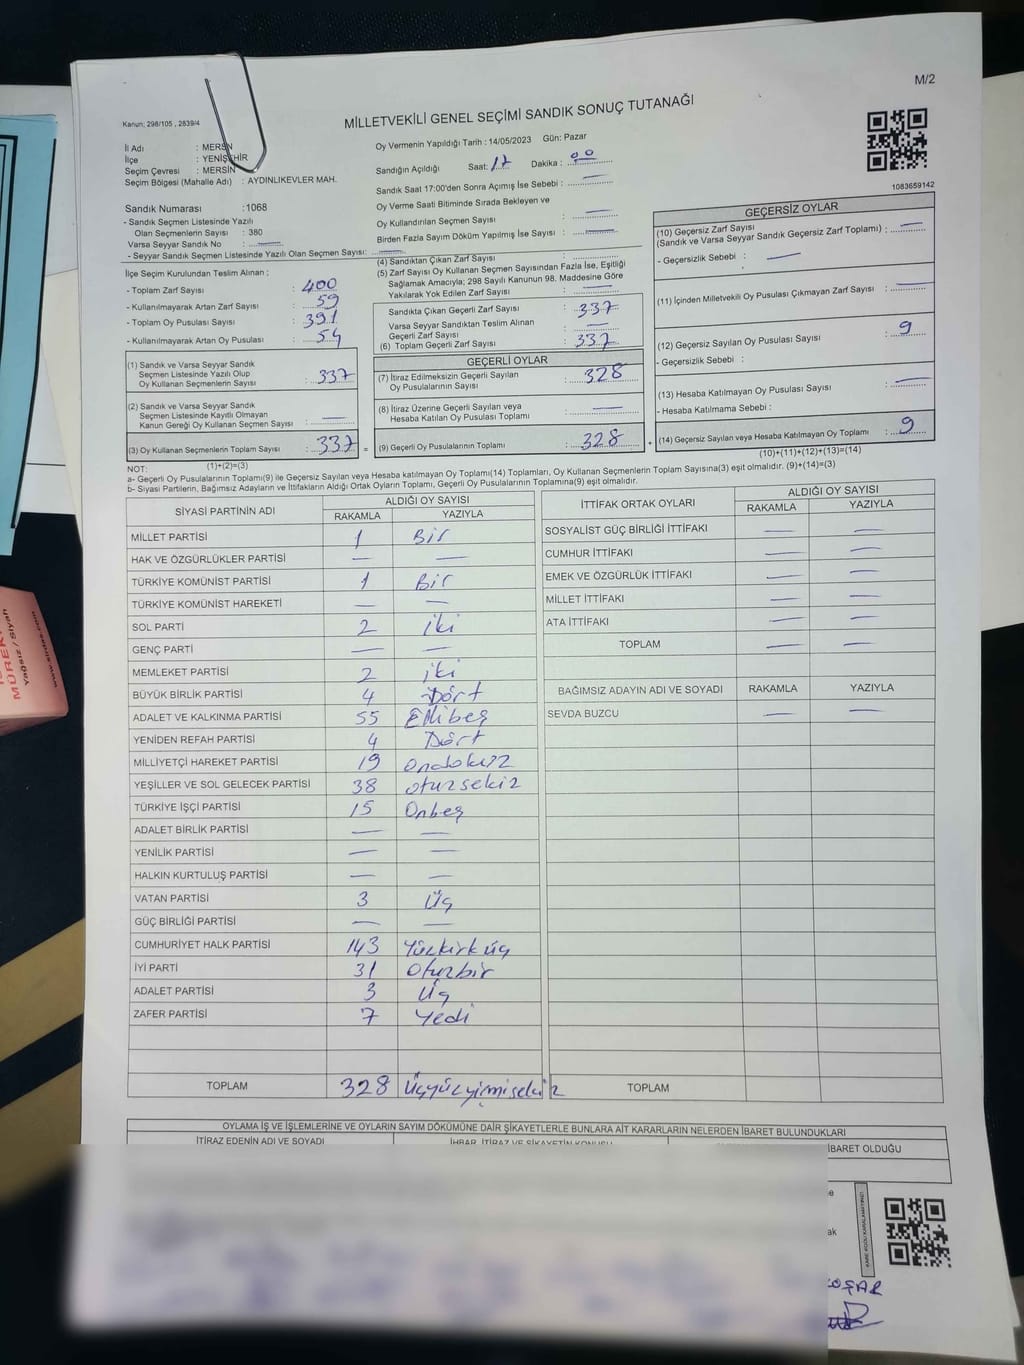 M/2
Kanun: 298/105 , 2839/4
MİLLETVEKİLİ GENEL SEÇİMİ SANDIK SONUÇ TUTANAĞI
İl Adı : MERSİN
İlçe : YENİŞEHİR
Seçim Çevresi : MERSİN
Seçim Bölgesi (Mahalle Adı) : AYDINLIKEVLER MAH.
Sandık Numarası :1068
- Sandık Seçmen Listesinde Yazılı
Olan Seçmenlerin Sayısı : 380
Varsa Seyyar Sandık No :
- Seyyar Sandık Seçmen Listesinde Yazılı Olan Seçmen Sayısı:
Oy Vermenin Yapıldığı Tarih : 14/05/2023 Gün: Pazar
Sandığın Açıldığı Saat: 17 Dakika : 00
Sandık Saat 17:00'den Sonra Açımış İse Sebebi : —
Oy Verme Saati Bitiminde Sırada Bekleyen ve
Oy Kullandırılan Seçmen Sayısı : —
Birden Fazla Sayım Döküm Yapılmış İse Sayısı : —
1083659142
İlçe Seçim Kurulundan Teslim Alınan ;
- Toplam Zarf Sayısı : 400
- Kullanılmayarak Artan Zarf Sayısı : 59
- Toplam Oy Pusulası Sayısı : 391
- Kullanılmayarak Artan Oy Pusulası : 54
(1) Sandık ve Varsa Seyyar Sandık
Seçmen Listesinde Yazılı Olup
Oy Kullanan Seçmenlerin Sayısı : 337
(2) Sandık ve Varsa Seyyar Sandık
Seçmen Listesinde Kayıtlı Olmayan
Kanun Gereği Oy Kullanan Seçmen Sayısı : —
(3) Oy Kullanan Seçmenlerin Toplam Sayısı : 337 =
(1)+(2)=(3)
(4) Sandıktan Çıkan Zarf Sayısı :
(5) Zarf Sayısı Oy Kullanan Seçmen Sayısından Fazla İse, Eşitliği
Sağlamak Amacıyla; 298 Sayılı Kanunun 98. Maddesine Göre
Yakılarak Yok Edilen Zarf Sayısı : —
Sandıkta Çıkan Geçerli Zarf Sayısı : 337
Varsa Seyyar Sandıktan Teslim Alınan
Geçerli Zarf Sayısı : —
(6) Toplam Geçerli Zarf Sayısı : 337
GEÇERLİ OYLAR
(7) İtiraz Edilmeksizin Geçerli Sayılan
Oy Pusulalarının Sayısı : 328
(8) İtiraz Üzerine Geçerli Sayılan veya
Hesaba Katılan Oy Pusulası Toplamı : —
(9) Geçerli Oy Pusulalarının Toplamı : 328
GEÇERSİZ OYLAR
(10) Geçersiz Zarf Sayısı
(Sandık ve Varsa Seyyar Sandık Geçersiz Zarf Toplamı) : —
- Geçersizlik Sebebi : —
(11) İçinden Milletvekili Oy Pusulası Çıkmayan Zarf Sayısı : —
(12) Geçersiz Sayılan Oy Pusulası Sayısı : 9
- Geçersizlik Sebebi :
(13) Hesaba Katılmayan Oy Pusulası Sayısı : —
- Hesaba Katılmama Sebebi :
(14) Geçersiz Sayılan veya Hesaba Katılmayan Oy Toplamı : 9
(10)+(11)+(12)+(13)=(14)
NOT:
a- Geçerli Oy Pusulalarının Toplamı(9) ile Geçersiz Sayılan veya Hesaba katılmayan Oy Toplamı(14) Toplamları, Oy Kullanan Seçmenlerin Toplam Sayısına(3) eşit olmalıdır. (9)+(14)=(3)
b- Siyasi Partilerin, Bağımsız Adayların ve İttifakların Aldığı Ortak Oyların Toplamı, Geçerli Oy Pusulalarının Toplamına(9) eşit olmalıdır.
SİYASİ PARTİNİN ADI ALDIĞI OY SAYISI
RAKAMLA YAZIYLA
MİLLET PARTİSİ 1 Bir
HAK VE ÖZGÜRLÜKLER PARTİSİ — —
TÜRKİYE KOMÜNİST PARTİSİ 1 Bir
TÜRKİYE KOMÜNİST HAREKETİ — —
SOL PARTİ 2 iki
GENÇ PARTİ — —
MEMLEKET PARTİSİ 2 iki
BÜYÜK BİRLİK PARTİSİ 4 Dört
ADALET VE KALKINMA PARTİSİ 55 Ellibeş
YENİDEN REFAH PARTİSİ 4 Dört
MİLLİYETÇİ HAREKET PARTİSİ 19 Ondokuz
YEŞİLLER VE SOL GELECEK PARTİSİ 38 otuzsekiz
TÜRKİYE İŞÇİ PARTİSİ 15 Onbeş
ADALET BİRLİK PARTİSİ — —
YENİLİK PARTİSİ — —
HALKIN KURTULUŞ PARTİSİ — —
VATAN PARTİSİ 3 Üç
GÜÇ BİRLİĞİ PARTİSİ — —
CUMHURİYET HALK PARTİSİ 143 Yüzkırküç
İYİ PARTİ 31 Otuzbir
ADALET PARTİSİ 3 Üç
ZAFER PARTİSİ 7 Yedi
TOPLAM 328 Üçyüzyirmisekiz
İTTİFAK ORTAK OYLARI ALDIĞI OY SAYISI
RAKAMLA YAZIYLA
SOSYALİST GÜÇ BİRLİĞİ İTTİFAKI — —
CUMHUR İTTİFAKI — —
EMEK VE ÖZGÜRLÜK İTTİFAKI — —
MİLLET İTTİFAKI — —
ATA İTTİFAKI — —
TOPLAM — —
BAĞIMSIZ ADAYIN ADI VE SOYADI RAKAMLA YAZIYLA
SEVDA BUZCU — —
TOPLAM
OYLAMA İŞ VE İŞLEMLERİNE VE OYLARIN SAYIM DÖKÜMÜNE DAİR ŞİKAYETLERLE BUNLARA AİT KARARLARIN NELERDEN İBARET BULUNDUKLARI
İTİRAZ EDENİN ADI VE SOYADI İHBAR, İTİRAZ VE ŞİKAYETİN KONUSU İBARET OLDUĞU
MÜREK
Yağsız / Siyah